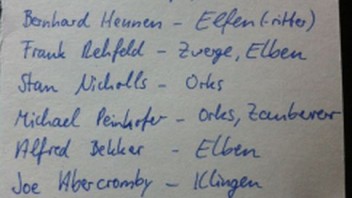 Bernhard Hennen - Elfen(-ritter)
Frank Rehfeld - Zwerge, Elben
Stan Nicholls - Orks
Michael Peinkofer - Orks, Zauberer
Alfred Bekker - Elben
Joe Abercromby - Klingen